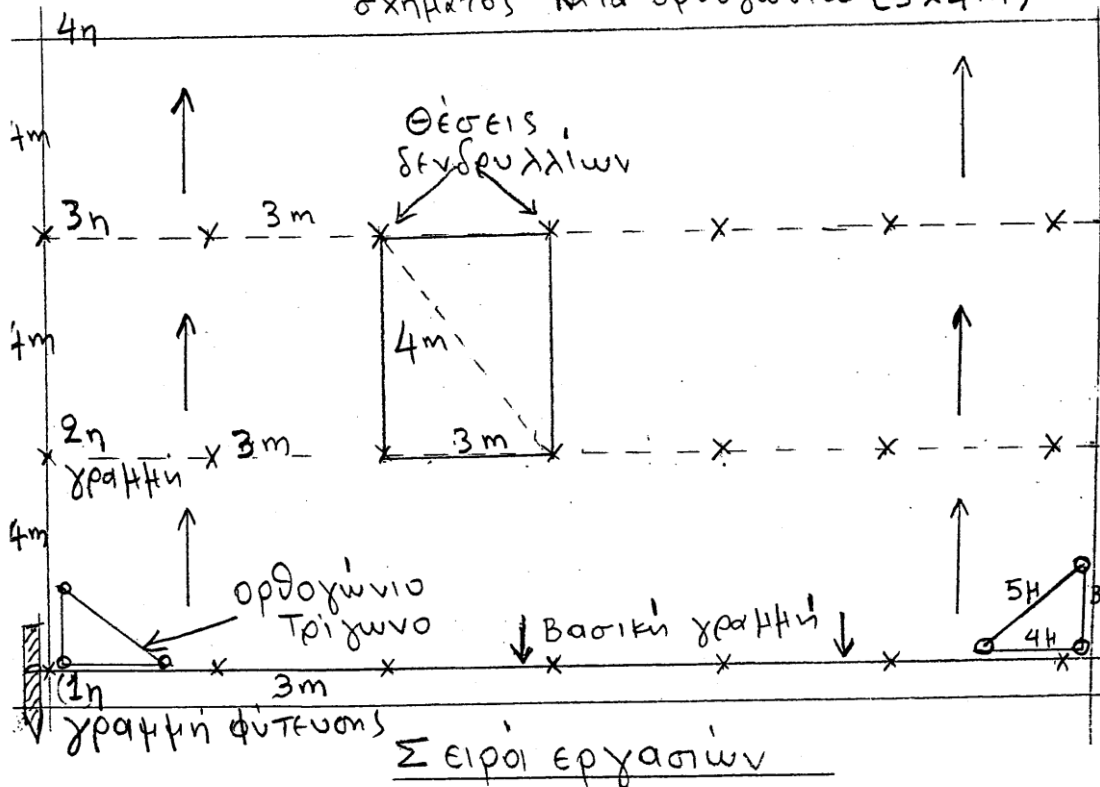 σχήματος κατά ορθογώνια (3x4m)
4η
4m
Θέσεις
δενδρυλλίων
3η 3m
4m
4m
2η 3m 3m
γραμμή
4m
ορθογώνιο
τρίγωνο
Βασική γραμμή
5μ
4μ
(1η 3m
γραμμή φύτευσης
Σειρά εργασιών